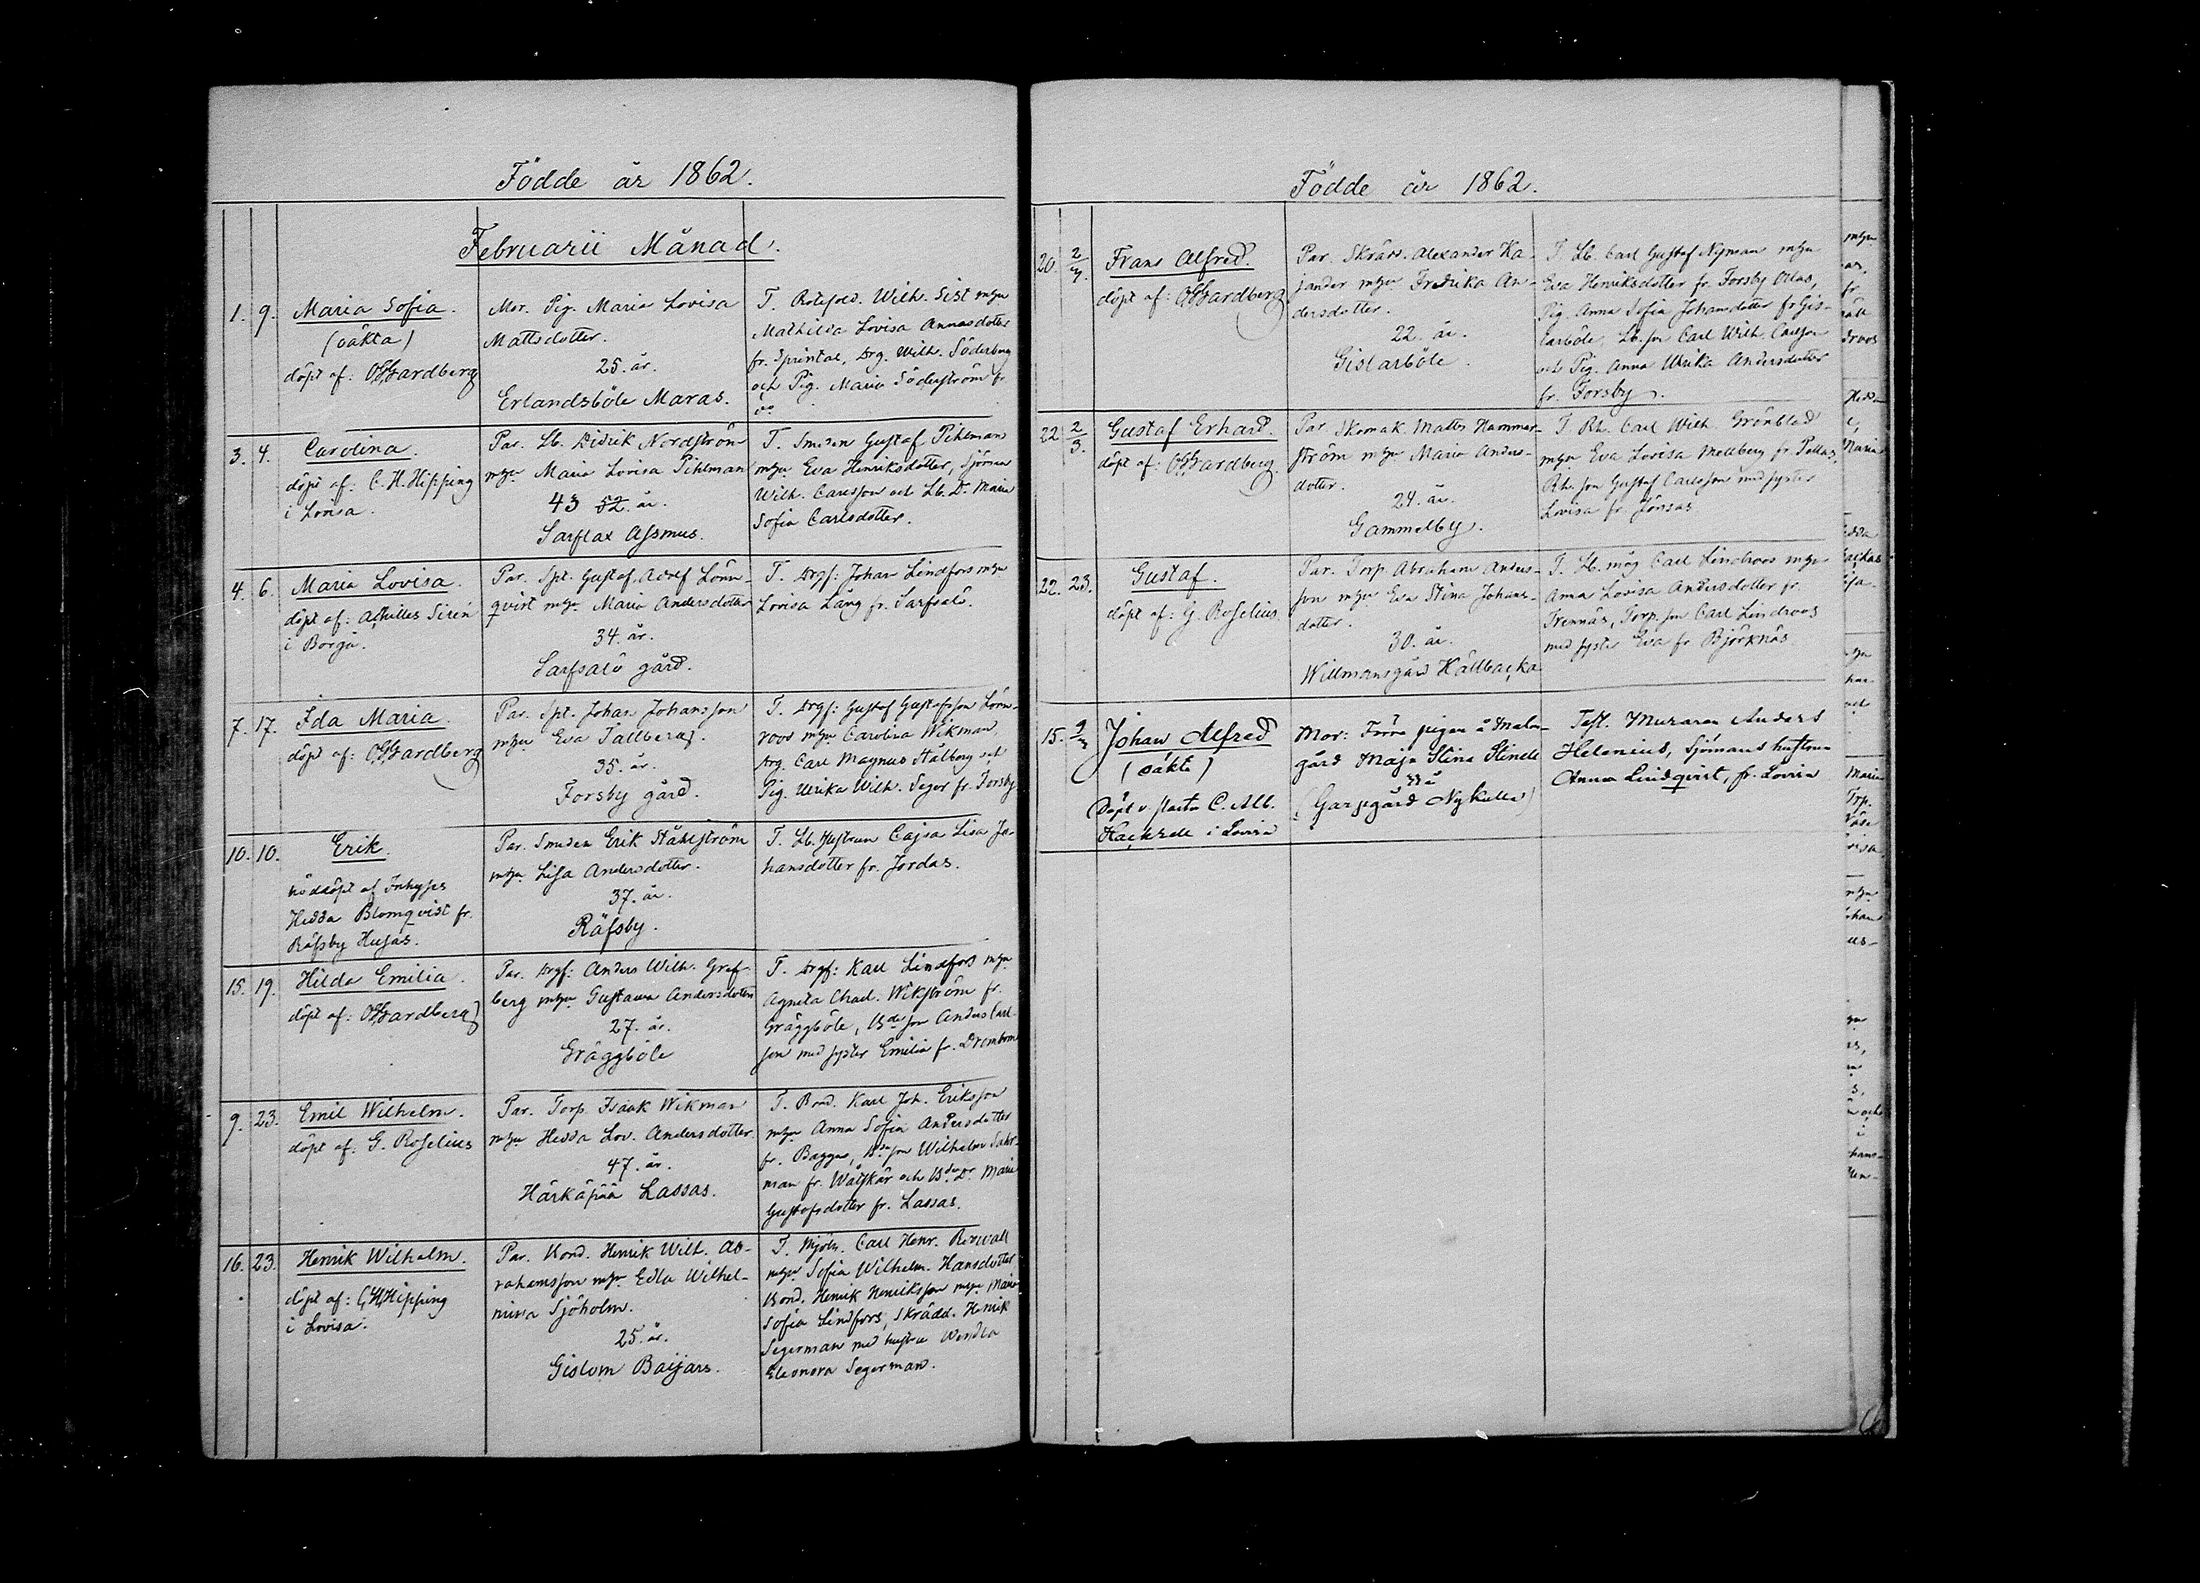 Födde år 1862.
Februarii Månad.
1. 9. Maria Sofia.
(oäkta)
döpt af: OHGardberg
Mor. Pig. Maria Lovisa
Mattsdotter.
25. år.
Erlandsböle Maras.
T. Wilh. Sist
Mathilda Lovisa Annasdotter
fr. Drg. Wilh. Söderberg
och Pig. Maria Söderström fr.
3. 4. Carolina.
döpt af: C. H. Hipping
i Lovisa.
Par. Lb. Didrik Nordström
mhu Maria Lovisa Pihlman
43 52. år.
Sarflax Assmus.
T. Smeden Gustaf Pihlman
mhu Eva Henriksdotter, Sjöman
Wilh. Carlsson och Lb. Dr Maria
Sofia Carlsdotter.
4. 6. Maria Lovisa.
döpt af: Achilles Sirén
i Borgå.
Par. Spt. Gustaf Adolf Lönn-
qvist mhu Maria Andersdotter
34. år.
Sarfsalö gård.
T. Drgf: Johan Lindfors mhu
Lovisa Lång fr. Sarfsalö.
7. 17. Ida Maria.
döpt af: OHGardberg
Par. Spt. Johan Johansson
mhu Eva Tallberg.
35. år.
Forsby gård.
T. Drgf: Gustaf Gustafsson Lönn-
roos mhu Carolina Wikman,
Drg. Carl Magnus Stålberg och
Pig. Ulrika Wilh. Seger fr. Forsby.
10. 10. Erik.
nöddöpt af Inhyses
Hedda Blomqvist fr.
Räfsby Husas.
Par. Smeden Erik Ståhlström
mhu Lisa Andersdotter.
37. år.
Räfsby.
T. Lb. Hustrun Cajsa Lisa Jo-
hansdotter fr. Jordas.
15. 19. Hilda Emilia.
döpt af: OHGardberg
Par. Drgf: Anders Wilh. Graf-
berg mhu Gustava Andersdotter
27. år.
Gräggböle
T. Drgf: Karl Lindfors mhu
Agneta Charl. Wikström fr.
Gräggböle, Bde son Anders Carl-
son med syster Emilia fr. Drombom
9. 23. Emil Wilhelm.
döpt af: G. Roselius
Par. Torp. Isaak Wikman
mhu Hedda Lov. Andersdotter
47. år.
Härkäpää Lassas.
T. Bond. Karl Joh. Eriksson
mhu Anna Sofia Andersdotter
fr. Baggas, Bde son Wilhelm
man fr. Wåtskär och Bde Dr Maria
Gustafsdotter fr. Lassas.
16. 23. Henrik Wilhelm.
döpt af: CHHipping
i Lovisa.
Par. Bond. Henrik Wilh. Ab-
rahamsson mhu Edla Wilhel-
mina Sjöholm.
25. år.
Gislom Baijars.
T. Mjöln. Carl Henr. Rewall
mhu Sofia Wilhelm. Hansdotter
Bond. Henrik Henriksson mhu Maria
Sofia Lindfors, Skrädd. Henrik
Segerman med hustru Wendla
Eleonora Segerman.
Födde år 1862.
20. 2/3. Frans Alfred.
döpt af: OHGardberg
Par. Skrädd. Alexander Ka-
jander mhu Fredrika An-
dersdotter.
22. år.
Gislarböle.
T. Lb. Carl Gustaf Nyman mhu
Eva Henriksdotter fr. Forsby Olas,
Pig. Anna Sofia Johansdotter fr Gis-
larböle, Lb. son Carl Wilh. Carlson
och Pig. Anna Ulrika Andersdotter
fr. Forsby.
22. 2/3. Gustaf Erhard.
döpt af: OHGardberg.
Par. Skomak. Matts Hammar-
ström mhu Maria Anders-
dotter.
24. år.
Gammelby.
T. Rh. Carl Wilh. Grönblad
mhu Eva Lovisa Mellberg fr. Pellas,
Rh. son Gustaf Carlsson med syster
Lovisa fr. Jönsas.
22. 23. Gustaf.
döpt af: G. Roselius.
Par. Torp. Abraham Anders-
son mhu Eva Stina Johans-
dotter.
30. år.
Willmansgård Hällbacka
T. Lb. måg Carl Lindroos mhu
Anna Lovisa Andersdotter fr.
Trennäs, Torp. son Carl Lindroos
med syster Eva fr Björknäs.
15. 9/3 Johan Alfred
(oäkta)
Döpt v. Pastor C. Alb.
Hackzell i Lovisa
Mor: Förra pigan å Malm-
gård Maja Stina Stinell
33 å
(Garpgård Nykulla)
Test. Muraren Anders
Helenius, Sjömans hustrun
Anna Lindqvist, fr. Lovisa